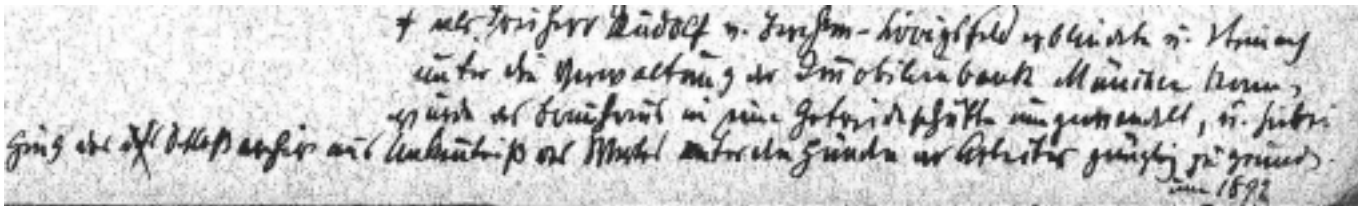 + als Freiherr Rudolf v. Berchem-Königsfeld erblindete u. Steinach
unter die Verwaltung der Immobilienbank München kam,
wurde das Brauhaus in eine Getreideschütte umgewandelt, u. hiebei
ging das Schloßarchiv aus Unkentniß des Wertes unter den Händen der Arbeiter gänzlich zu grunde.
um 1892